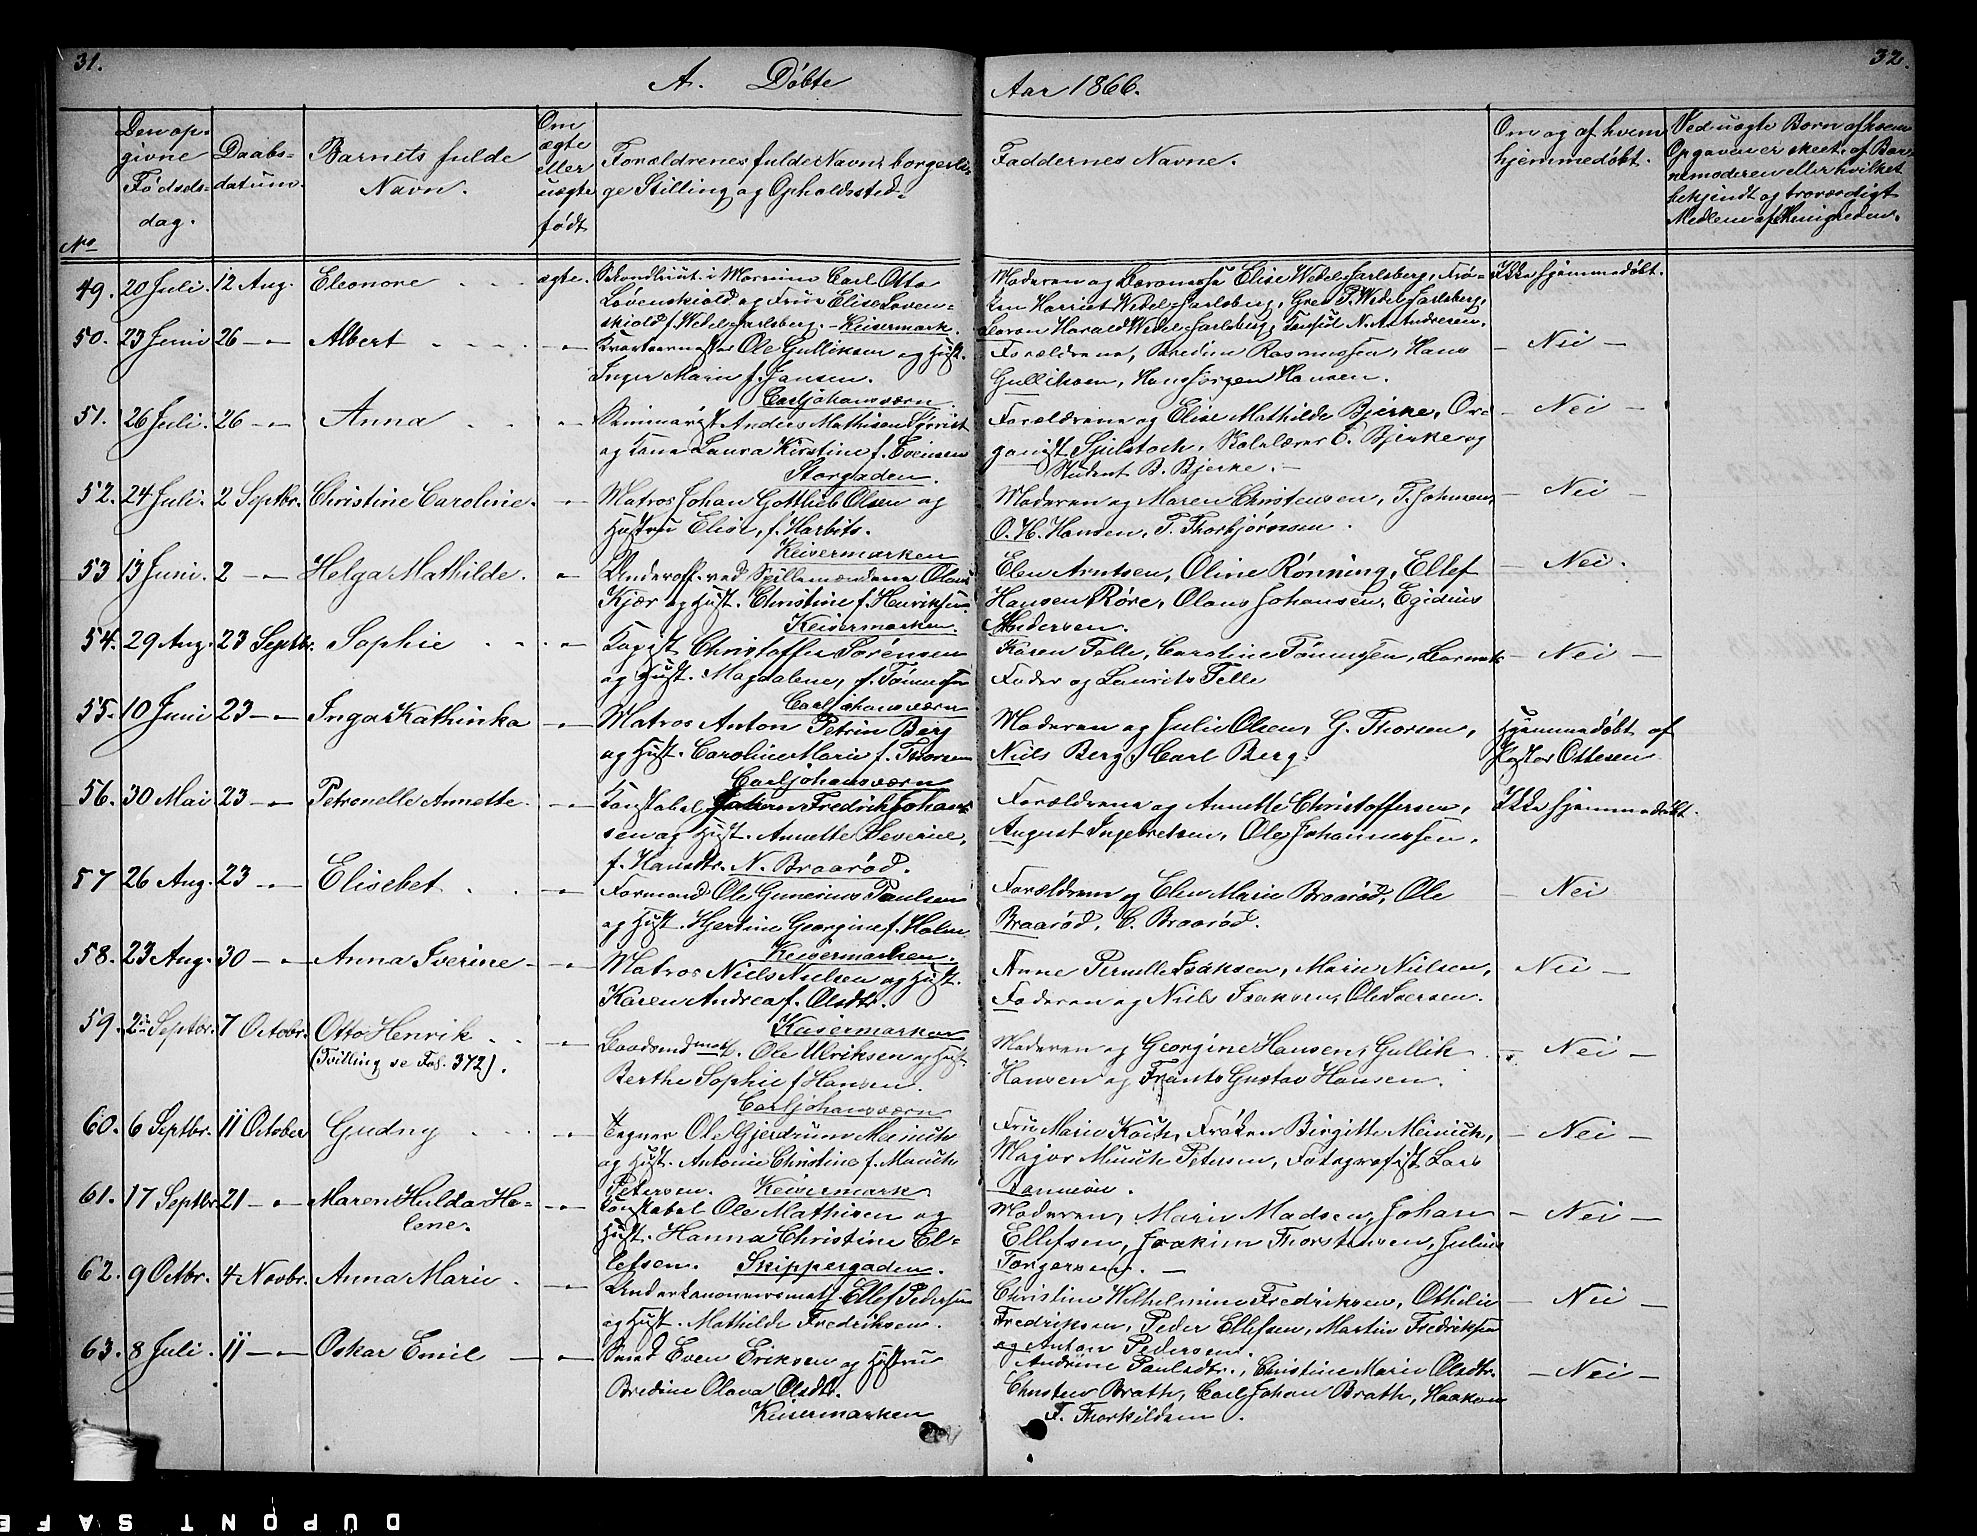 31.
A. Døbte
Aar 1866.
32.
No
Den op-
givne
Fødsels-
dag.
Daabs-
datum.
Barnets fulde
Navn.
Om
ægte
eller
uægte
født
Forældrenes fulde Navne, borgerli-
ge Stilling og Opholdssted.
Faddernes Navne.
Om og af hvem
hjemmedøbt.
Ved uægte Børn af hvem
Opgaven er skeet, af Bar-
nemoderen eller hvilket
bekjendt og troværdigt
Medlem af Menigheden.
49. 20 Juli. 12 Aug. Eleonore ægte.
Sekondlieut. i Marinen Carl Otto
Løvenskiold og Frue Elise Løven-
skiold f. Wedel-Jarlsberg. Keisermark.
Moderen og Baronesse Elise Wedel-Jarlsberg, Frø-
ken Harriet Wedel-Jarlsberg, Grev P. Wedel-Jarlsberg,
Baron Harald Wedel-Jarlsberg, Konsul N. A. Andresen.
Ikke hjemmedøbt.
50. 23 Juni 26 — " — Albert — " —
Kvarteermester Ole Gulliksen og Hust.
Inger Marie f. Jansen.
Carljohansværn.
Forældrene, Bredine Rasmussen, Hans
Gulliksen, Hans Jørgen Hansen.
— Nei —
51. 26 Juli. 26 — " — Anna — " —
Seminarist Anders Mathisen
og Kone Laura Kirstine f. Evensen
Storgaden.
Forældrene og Elise Mathilde Bjerke, Or-
ganist Sjulstock, Skolelærer C. Bjerke og
Student B. Bjerke.
— Nei —
52. 24 Juli. 2 Septbr. Christine Caroline. — " —
Matros Johan Gottlieb Olsen og
Hustru Elise, f. Harbits.
Keisermarken
Moderen og Maren Christensen, T. Johnsen,
O. H. Hansen, T. Thorbjørnsen.
— Nei —
53 13 Juni. 2 — " — Helga Mathilde. — " —
Underoff. ved Spillemændene Olaus
Kjær og Hust. Christine f. Henriksen.
Keisermarken.
Elen Arntsen, Oline Rønning, Ellef
Hansen Røre, Olaus Johansen, Egidius
Andersen.
— Nei.
54. 29 Aug. 23 Septbr. Sophie — " —
Kopist Christoffer Sørensen
og Hust. Magdalene, f. Tønnessen
Carljohansværn
Karen Falle, Caroline Tønnessen, Barnets
Fader og Laurits Felle
— Nei —
55. 10 Juni 23 — " — Inga Kathinka — " —
Matros Anton Petrin Berg
og Hust. Caroline Marie f. Thorsen
Carljohansværn
Moderen og Julie Olsen, G. Thorsen,
Niels Berg, Carl Berg.
Hjemmedøbt af
Pastor Ottesen
56. 30 Mai 23 — " — Petronelle Annette. — " —
Konstabel Johan Fredrik Johan-
sen og Hust. Annette Severine,
f. Hansdtr. N. Braarød.
Forældrene og Annette Christoffersen,
August Ingebretsen, Ole Johannessen.
Ikke hjemmedøbt.
57 26 Aug. 23 — " — Elisebet — " —
Formand Ole Gunerius Paulsen
og Hust. Hjertine Georgine f. Holm
Keisermarken.
Forældrene og Elen Marie Braarød, Ole
Braarød, C. Braarød.
— Nei
58. 23 Aug. 30 — " — Anna Sverine — " —
Matros Niels Nielsen og Hust.
Karen Andrea f. Olsdtr.
Keisermarken
Anne Pernelle Isaksen, Marie Nielsen,
Faderen og Niels Isaksen, Ole Iversen.
Nei —
59. 2 Septbr. 7 Octobr. Otto Henrik — " —
(Tvilling se Fol. 372).
Baadsmdmat Ole Ulriksen og Hust.
Berthe Sophie f. Hansen.
Carljohansværn
Moderen og Georgine Hansen, Gullik
Hansen og Frants Gustav Hansen.
— Nei —
60. 6 Septbr. 11 October Gudny — " —
Tegner Ole Gjerdrum Meinich
og Hust. Antonie Christine f. Munch
Petersen. Keisermark
Fru Marie Koch, Frøken Birgitte Meinich,
Major Munch Petersen, Fotografist Lars

— Nei —
61. 17 Septbr. 21 — " — Maren Hulda He-
lene. — " —
Konstabel Ole Mathisen og
Hust. Hanna Christine El-
lefsen. Skippergaden.
Moderen, Marie Madsen, Johan
Ellefsen, Joakim Thorstensen, Julius
Torgersen. —
— Nei —
62. 9 Octbr. 4 Novbr. Anna Marie — " —
Underkanonnersmat Ellef Pedersen
og Hust. Mathilde Fredriksen.
Christine Wilhelmine Fredriksen, Othilie
Fredriksen, Peder Ellefsen, Martin Fredriksen
og Anton Pedersen.
— Nei —
63. 8 Juli. 11 — " — Oskar Emil — " —
Smed Even Eriksen og Hustru
Bredine Olava Olsdtr.
Keisermarken
Andrine Paulsdtr., Christine Marie Olsdtr.
Christen Brath, Carl Johan Brath, Haakon
T. Thorkildsen.
— Nei —
DUPONT SAFE